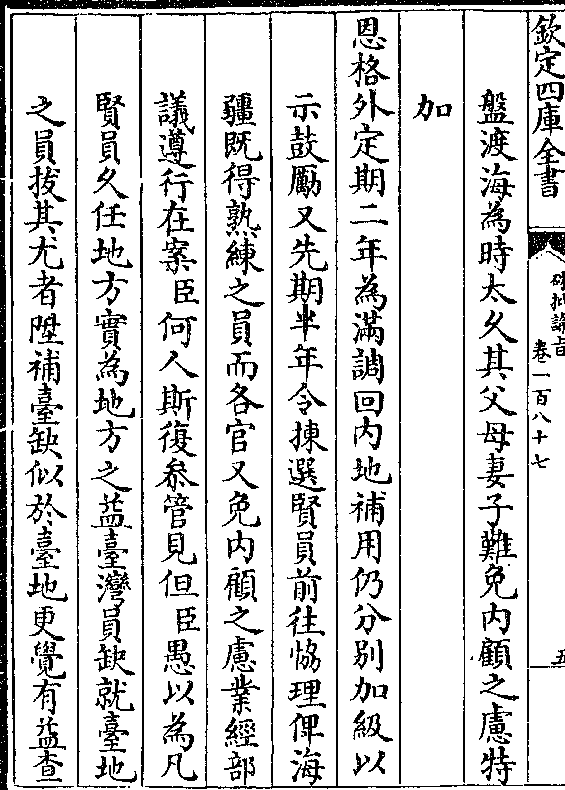 欽定四庫全書
硃批諭旨
卷一百八十七
五
盤渡海為時太久其父母妻子難免内顧之慮特
加
恩格外定期二年為滿調回内地補用仍分别加級以
示鼓勵又先期半年令揀選賢員前往恊理俾海
疆既得熟練之員而各官又免内顧之慮業經部
議遵行在案臣何人斯復叅管見但臣愚以為凡
賢員久任地方實為地方之益臺灣員缺就臺地
之員拔其尤者陞補臺缺似於臺地更覺有益查